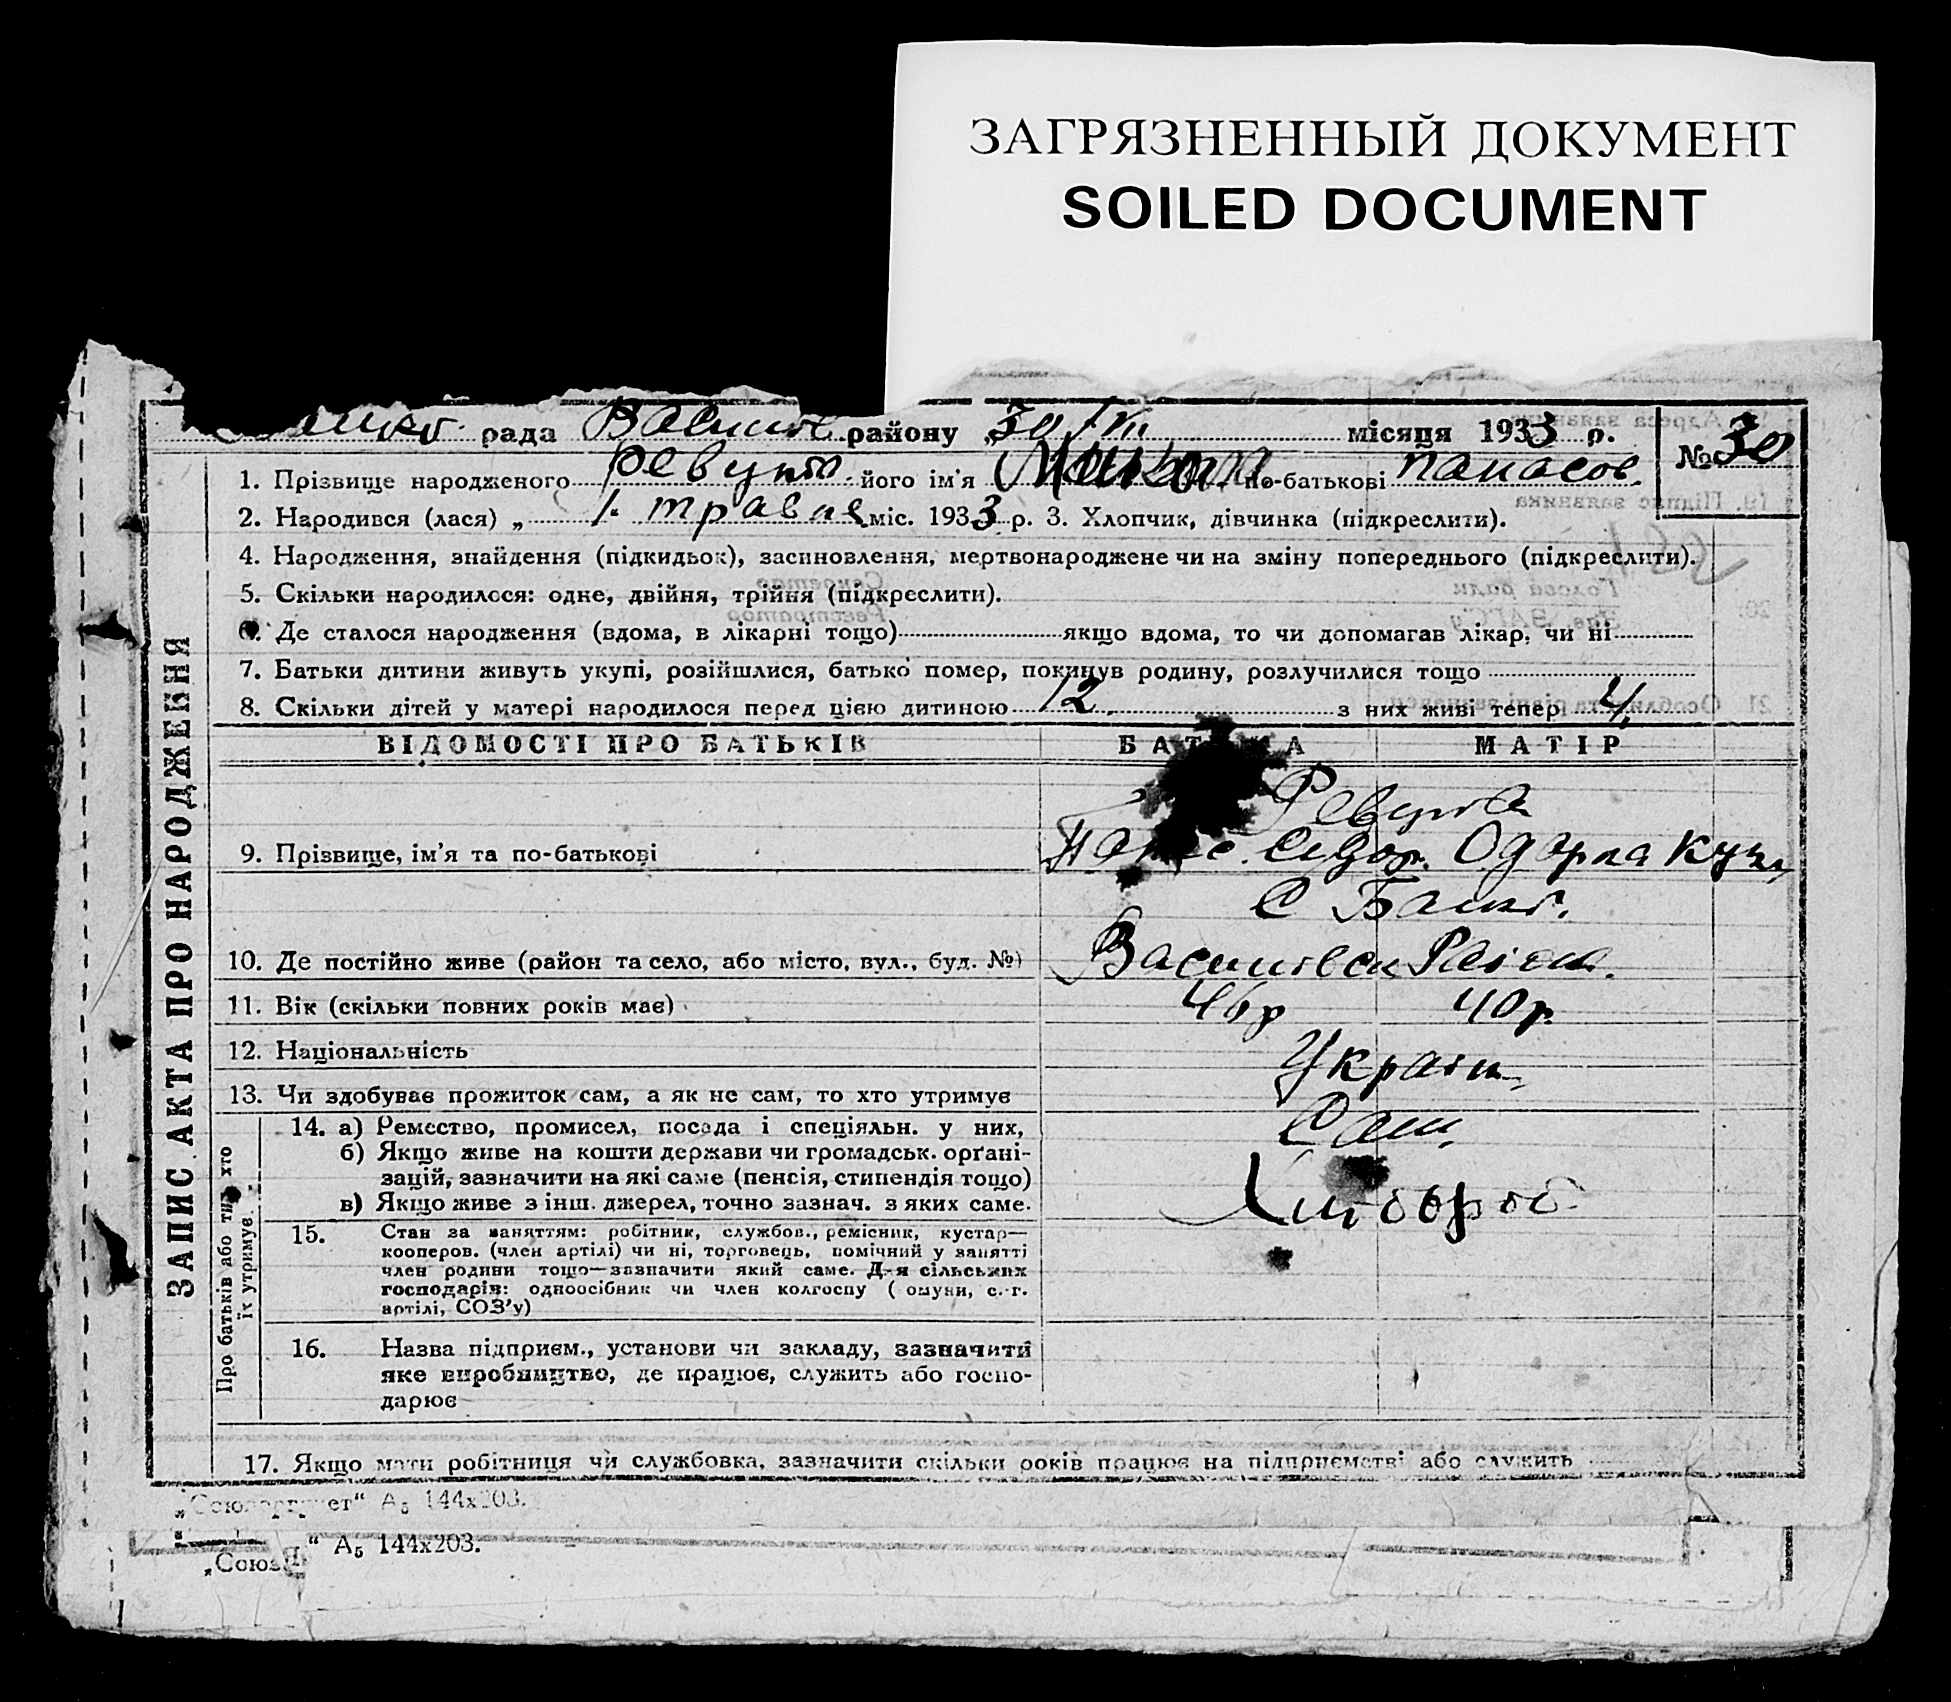 ЗАГРЯЗНЕННЫЙ ДОКУМЕНТ
SOILED DOCUMENT
рада Василів району „30 місяця 1933 р. № 30
1. Прізвище народженого його ім'я по-батькові Панасов.
2. Народився (лася) „ 1. травня міс. 1933 р. 3. Хлопчик, дівчинка (підкреслити).
4. Народження, знайдення (підкидьок), засиновлення, мертвонароджене чи на зміну попереднього (підкреслити).
5. Скільки народилося: одне, двійня, трійня (підкреслити).
6. Де сталося народження (вдома, в лікарні тощо) якщо вдома, то чи допомагав лікар, чи ні
7. Батьки дитини живуть укупі, розійшлися, батько помер, покинув родину, розлучилися тощо
8. Скільки дітей у матері народилося перед цією дитиною 12 з них живі тепер 4
ЗАПИС АКТА ПРО НАРОДЖЕННЯ
ВІДОМОСТІ ПРО БАТЬКІВ
МАТІР
9. Прізвище, ім'я та по-батькові Одарка
10. Де постійно живе (район та село, або місто, вул., буд. №)
11. Вік (скільки повних років має) 46р 40р.
12. Національність Україн.
13. Чи здобуває прожиток сам, а як не сам, то хто утримує Сам.
Про батьків або тих хто
їх утримує.
14. а) Ремество, промисел, посада і спеціяльн. у них,
б) Якщо живе на кошти держави чи громадськ. орґані-
зацій, зазначити на які саме (пенсія, стипендія тощо)
в) Якщо живе з інш. джерел, точно зазнач. з яких саме. Хлібороб
15. Стан за заняттям: робітник, службов., ремісник, кустар—
кооперов. (член артілі) чи ні, торговець, помічний у занятті
член родини тощо—зазначити який саме. Для сільських
господарів: одноосібник чи член колгоспу (комуни, с.-г.
артілі, СОЗ'у)
16. Назва підприєм., установи чи закладу, зазначити
яке виробництво, де працює, служить або госпо-
дарює
17. Якщо мати робітниця чи службовка, зазначити скільки років працює на підприємстві або служить
А₅ 144х203.
“ А₅ 144х203.